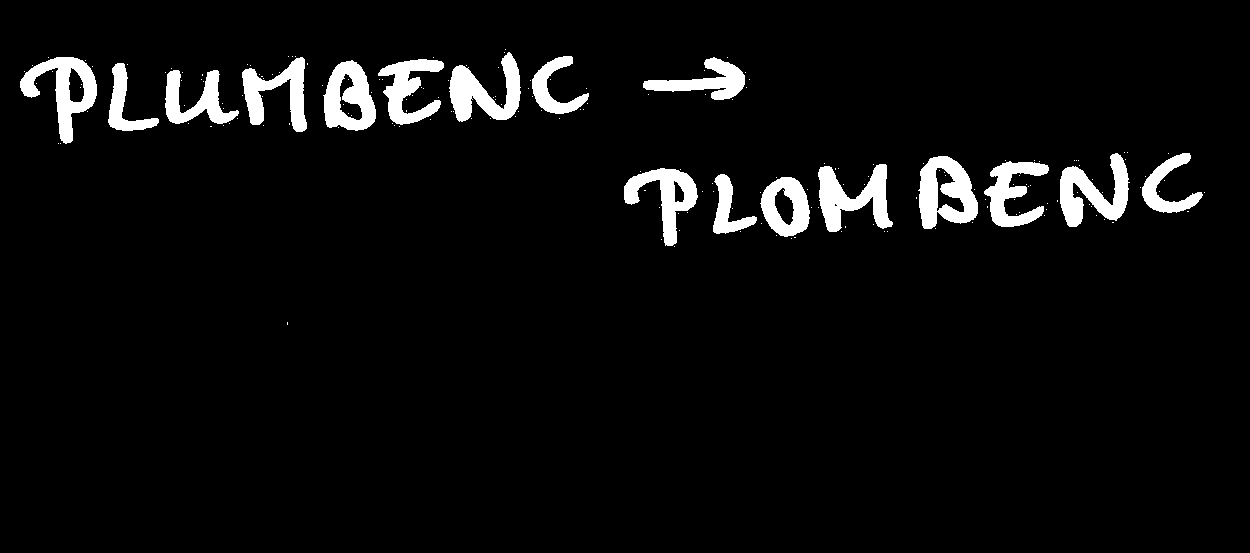 PLUMBENC →
PLOMBENC